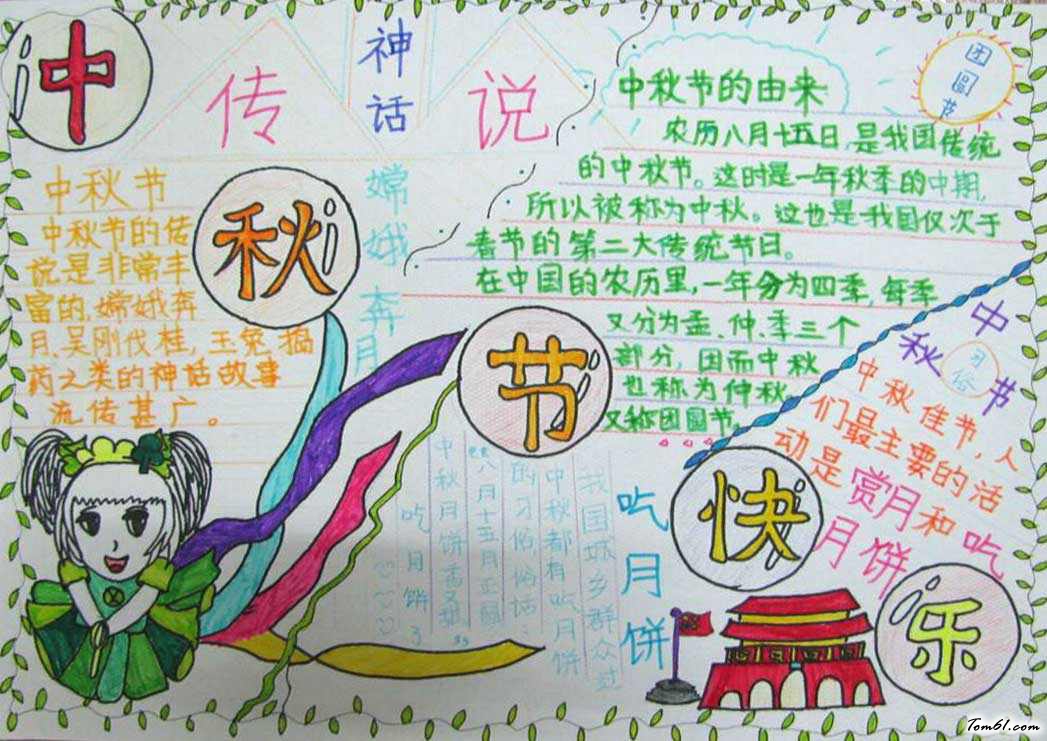 中
秋
节
快
乐
传
神
话
说
中秋节
中秋节的传
说是非常丰
富的,嫦娥奔
月.吴刚伐桂,玉兔捣
药之类的神话故事
流传甚广。
嫦娥奔月
中秋节的由来
农历八月十五日,是我国传统
的中秋节。这时是一年秋季的中期,
所以被称为中秋。这也是我国仅次于
春节的第二大传统节日。
在中国的农历里,一年分为四季,每季
又分为孟、仲、季三个
部分,因而中秋
也称为仲秋
又称团圆节。
团
圆
节
中秋
习俗
节
中秋佳节,人
们最主要的活
动是赏月和吃
月饼
吃
月
饼
我国城乡群众过
中秋都有吃月饼
的习俗俗话:
八月十五月正圆
中秋月饼香又甜
吃月饼
Tom61.com